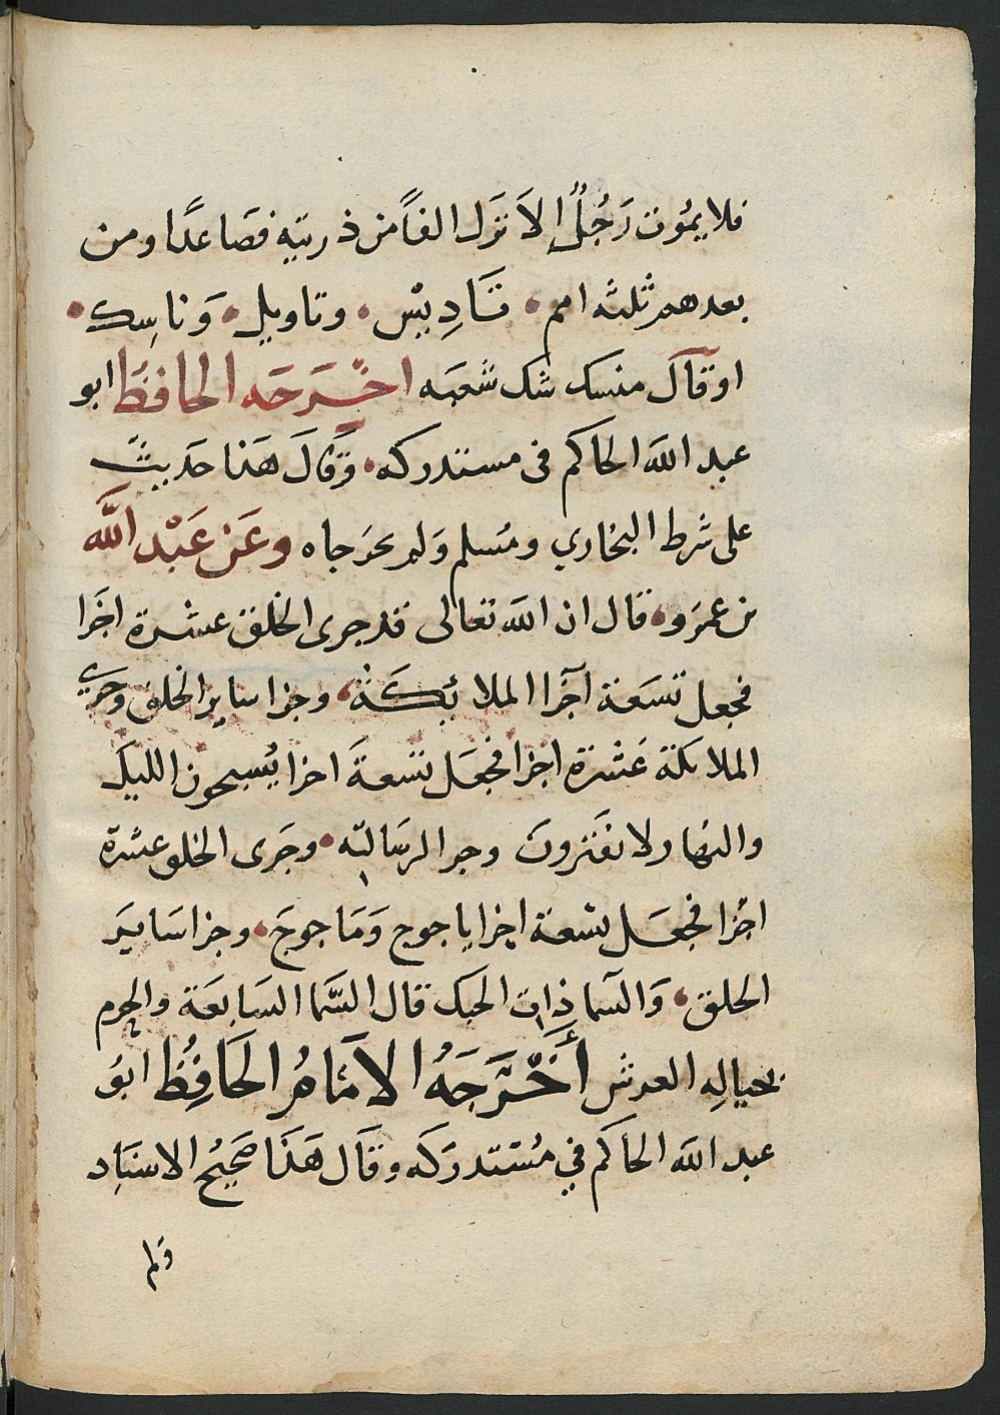 فلا يموت رَجُلٌ إلاَ تَرَك الفاً من ذريته فصَاعدًا ومن
بعدهم ثلثه امم • تَادِيْس • وتاويل • وَناسِك •
او قاَل منسك شك شعبَه اخْرَجَه الحافظُ ابو
عبد الله الحاكم فى مستدركه • وَقَالَ هَذا حَديث
على شرط البخاري ومُسلم وَلم يخرَجاه وعَن عَبْد اللَّه
بن عمرَو • قال ان الله تعالى قد جزى الخلق عشرة اجزا
فجعل تسَعَة اجزا الملائكَة • وجزا ساير الخلق وجزي
الملائكة عَشْرة اجزا فجعَل تسعةَ اجزا يُسبحون الليل
والنهار لا يفترون وجزا لرسَالته • وجَزى الخلق عشرة
اجُزا فجعَل تسعة اجزا ياجوج وَمَاجوجَ • وجزا سَايرَ
الخلق • وَالسَما ذات الحبك قال السَّما السَابعَة والحرم
بحيالِه العرش أخْرَجَهُ الامَامُ الحَافِظُ ابوُ
عبد الله الحاكم في مُسْتدرَكه وقَال هَذَا صَحِيحُ الاسنَاد
وَلم